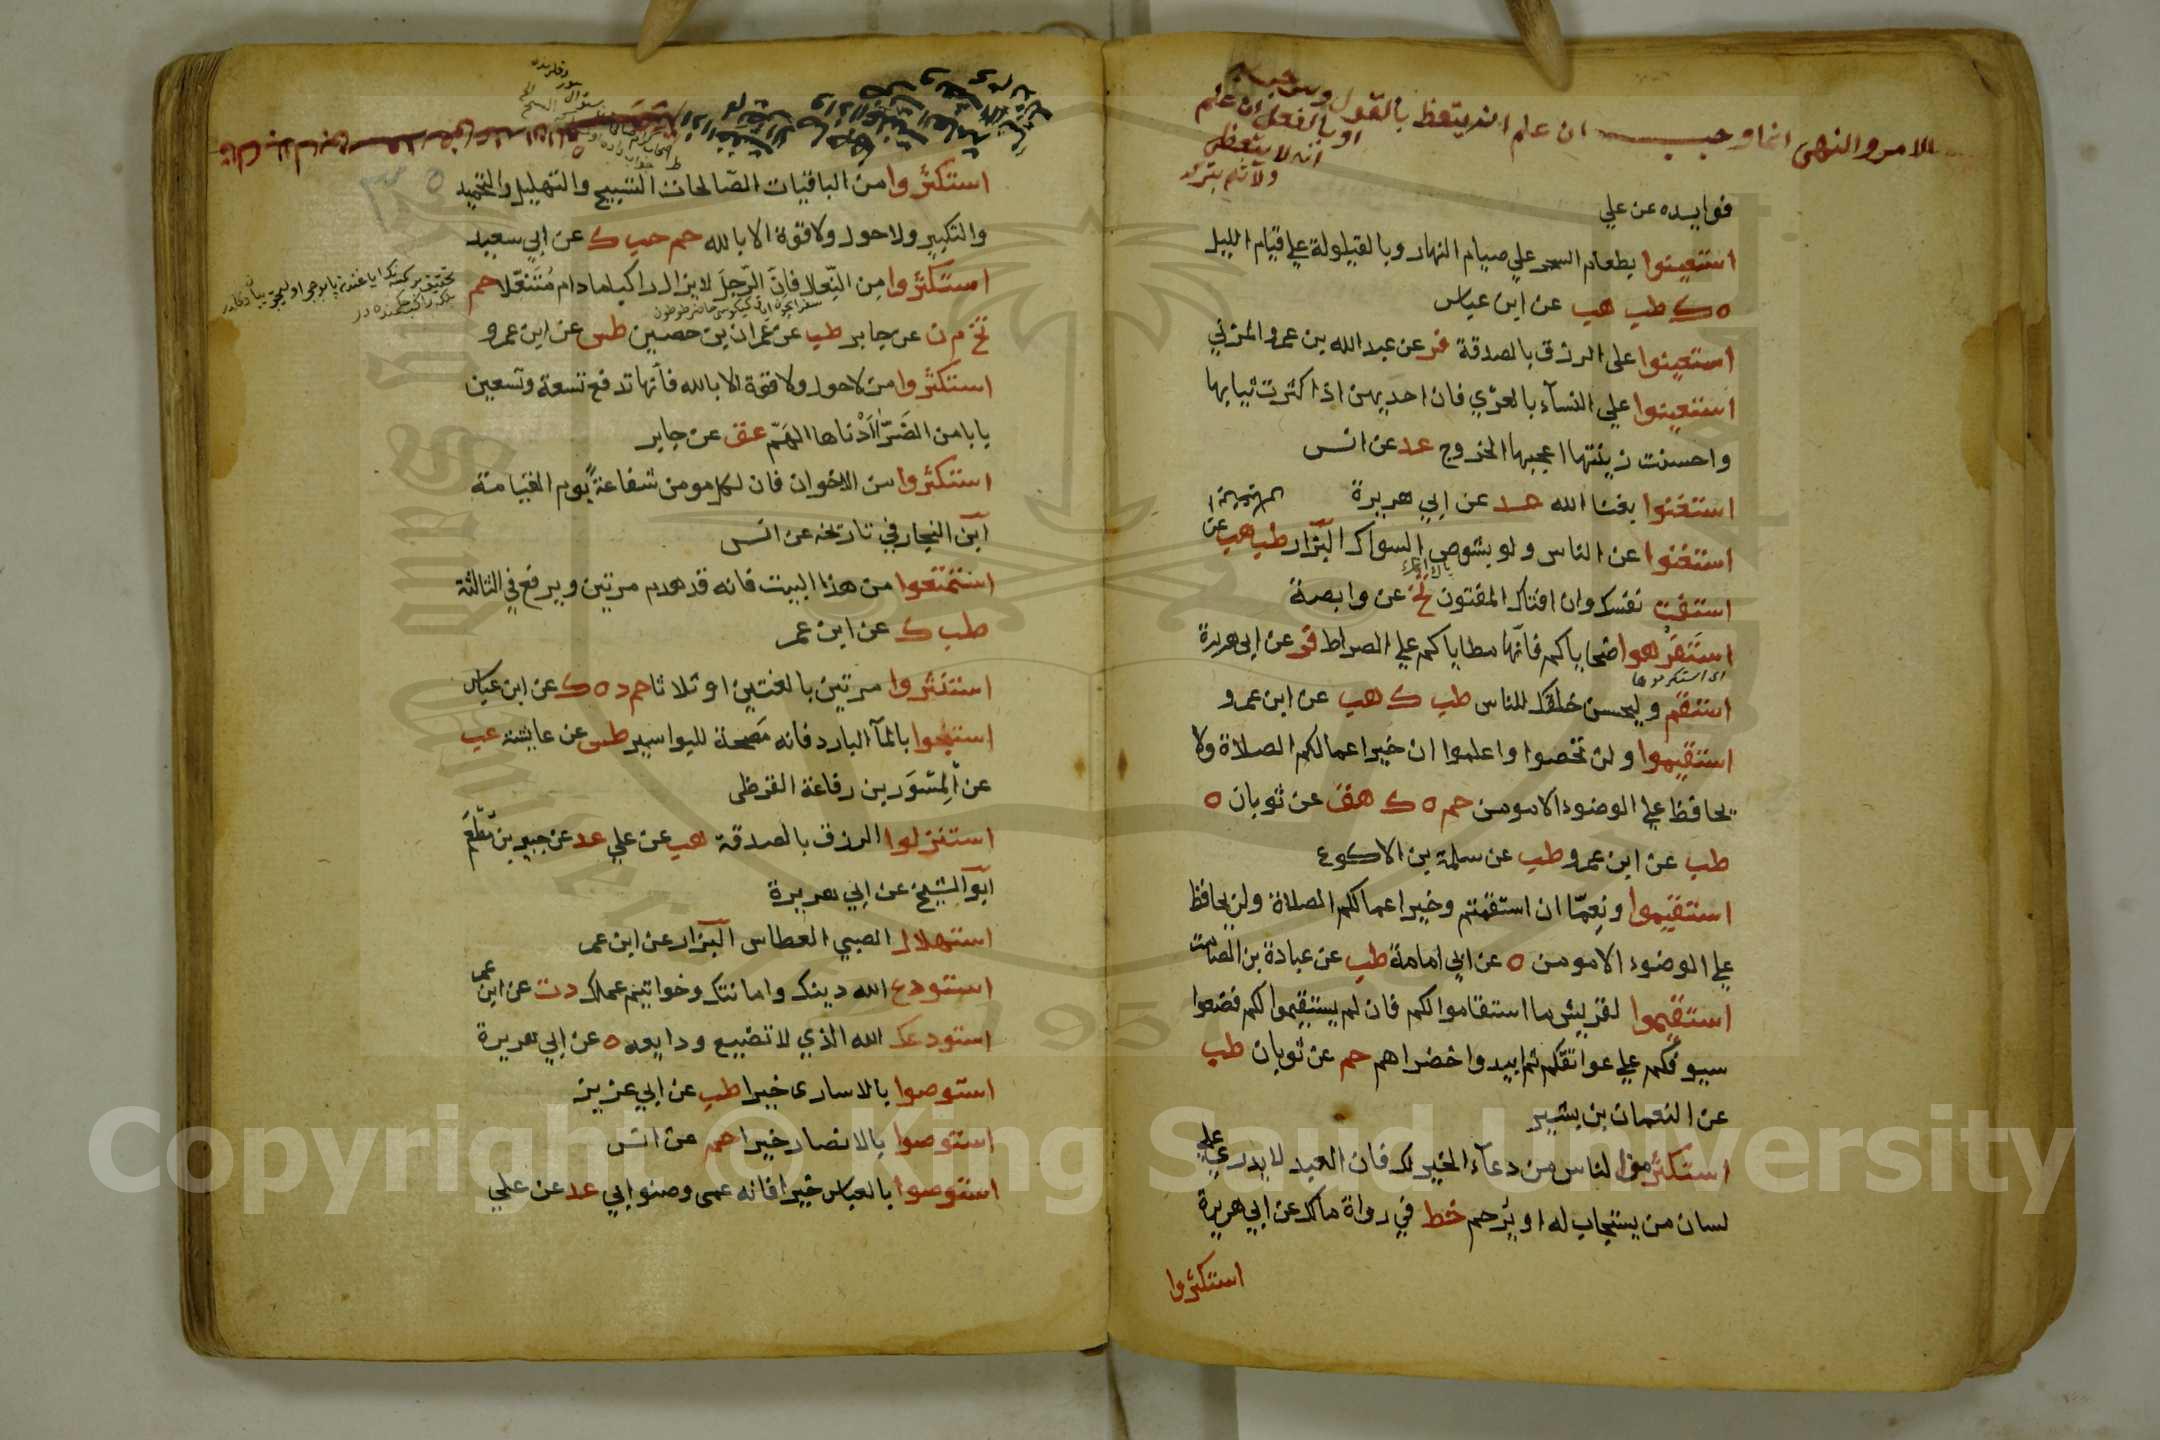 الامر والنهى انما وجب ان علم انه يتعظ بالقول
او بالفعل ان علم
انه لا يتعظ
فوايده عن علي
استعينوا بطعام السحر علي صيام النهار وبالقيلولة علي قيام الليل
ه ك طب هب عن ابن عباس
استعينوا على الرزق بالصدقة فر عن عبد الله بن عمرو المزني
استعينوا علي النسآء بالعري فان احديهن اذا كثرت ثيابها
واحسنت زينتها اعجبها الخروج عد عن انس
استغنوا بغنا الله عد عن ابي هريرة
استغنوا عن الناس ولو بشوص السواك البزار طب هب عن
استفت نفسك وان افتاك المفتون تخ عن وابصة
استفرهوا ضحاياكم فانها مطاياكم علي الصراط فر عن ابي هريرة
اى استكرموها
استقم وليحسن خلقك للناس طب ك هب عن ابن عمرو
استقيموا ولن تحصوا واعلموا ان خير اعمالكم الصلاة ولا
يحافظ علي الوضوء الا مومن حم ه ك هق عن ثوبان ه
طب عن ابن عمرو طب عن سلمة بن الاكوع
استقيموا ونعما ان استقمتم وخير اعمالكم الصلاة ولن يحافظ
علي الوضوء الا مومن ه عن ابي امامة طب عن عبادة بن الصامت
استقيموا لقريش ما استقاموا لكم فان لم يستقيموا لكم فضعوا
سيوفكم علي عواتقكم ثم ابيدوا خضراهم حم عن ثوبان طب
عن النعمان بن بشير
استكثر من الناس من دعآء الخير لك فان العبد لا يدري علي
لسان من يستجاب له او يرحم خط في رواة مالك عن ابي هريرة
استكثروا
استكثروا من الباقيات الصالحات التسبيح والتهليل والتحميد
والتكبير ولا حول ولا قوة الا بالله حم حب ك عن ابي سعيد
استكثروا من النعل فان الرجل لا يزال راكبا ما دام متنعلا حم
تخ م ن عن جابر طب عن عمران بن حصين طس عن ابن عمرو
استكثروا من لا حول ولا قوة الا بالله فانها تدفع تسعة وتسعين
بابا من الضر ادناها الهم عق عن جابر
استكثروا من الاخوان فان لكل مومن شفاعة يوم القيامة
ابن النجار في تاريخه عن انس
استمتعوا من هذا البيت فانه قد هدم مرتين ويرفع في الثالثة
طب ك عن ابن عمر
استنثروا مرتين بالغتين او ثلاثا حم د ه ك عن ابن عباس
استنجوا بالمآ البارد فانه مصحة للبواسير طس عن عايشة عب
عن المسور بن رفاعة القرظى
استنزلوا الرزق بالصدقة هب عن علي عد عن جبير بن مطعم
ابو الشيخ عن ابي هريرة
استهلال الصبي العطاس البزار عن ابن عمر
استودع الله دينك وامانتك وخواتيم عملك د ت عن ابن عمر
استودعك الله الذي لا تضيع ودايعه ه عن ابي هريرة
استوصوا بالاسارى خيرا طب عن ابي عزيز
استوصوا بالانصار خيرا حم عن انس
استوصوا بالعباس خيرا فانه عمى وصنو ابي عد عن علي
Copyright © King Saud University
King Saud University
1957